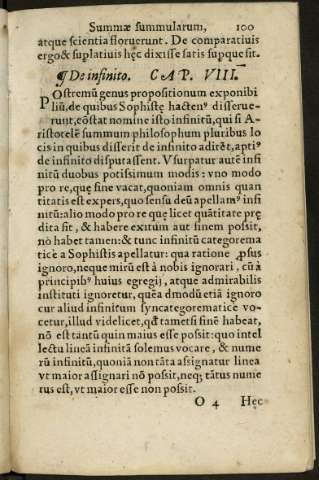 Summæ summularum, 100
atque scientia floruerunt. De comparatiuis
ergo & suplatiuis hęc dixisse satis supque sit.
¶ De infinito. CAP. VIII.
POstremũ genus propositionum exponibi
liũ, de quibus Sophistę hacten⁹ disserue-
runt, cõstat nomine isto infinitũ, qui si A-
ristotelẽ summum philosophum pluribus lo
cis in quibus disserit de infinito aditẽt, apti⁹
de infinito disputassent. Vsurpatur autẽ infi
nitũ duobus potissimum modis: vno modo
pro re, quę fine vacat, quoniam omnis quan
titatis est expers, quo sensu deũ apellam⁹ infi
nitũ: alio modo pro re quę licet quãtitate prę
dita sit, & habere exitum aut finem possit,
nõ habet tamen: & tunc infinitũ categorema
ticè a Sophistis apellatur: qua ratione ꝓsus
ignoro, neque mirũ est à nobis ignorari, cũ à
principib⁹ huius egregij, atque admirabilis
instituti ignoretur, quẽadmodũ etiã ignoro
cur aliud infinitum syncategorematice vo-
cetur, illud videlicet, qđ tametsi finẽ habeat,
nõ est tantũ quin maius esse possit: quo intel
lectu lineã infinitã solemus vocare, & nume
rũ infinitũ, quoniã non tãta assignatur linea
vt maior assignari nõ possit, neq; tãtus nume
rus est, vt maior esse non possit.
O 4 Hęc